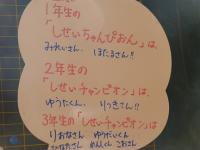 1年生の
「しせいちゃんぴおん」は、
みれいさん、ほたるさん!!
2年生の
「しせいチャンピオン」は、
ゆうたくん、りつきてん!!
3年生の「しせいチャンピオン」は
りおなさん ゆうだいくん
ひなたさん